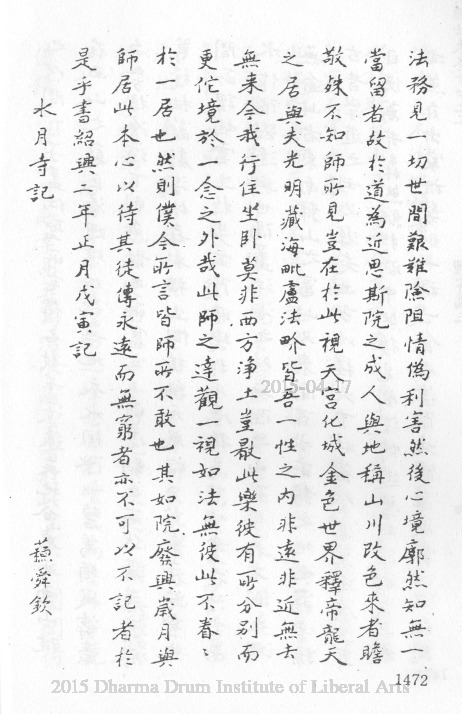 法務見一切世間艱難險阻情偽利害然後心境廓然知無一
當留者故於道為近思斯院之成人與地稱山川改色來者瞻
敬殊不知師所見豈在於此視天宮化城金色世界釋帝龍天
之居與夫光明藏海毗盧法界皆吾一性之內非遠非近無去
無来今我行住坐卧莫非西方淨土豈㝡此樂彼有所分別而
更佗境於一念之外哉此師之達觀一視如法無彼此不眷〻
於一居也然則僕今所言皆師所不敢也其如院廢興歲月與
師居此本心以待其徒傳永遠而無窮者亦不可以不記者於
是乎書紹興二年正月戊寅記
水月寺記
蘇舜欽
2015-04-17
1472
2015 Dharma Drum Institute of Liberal Arts